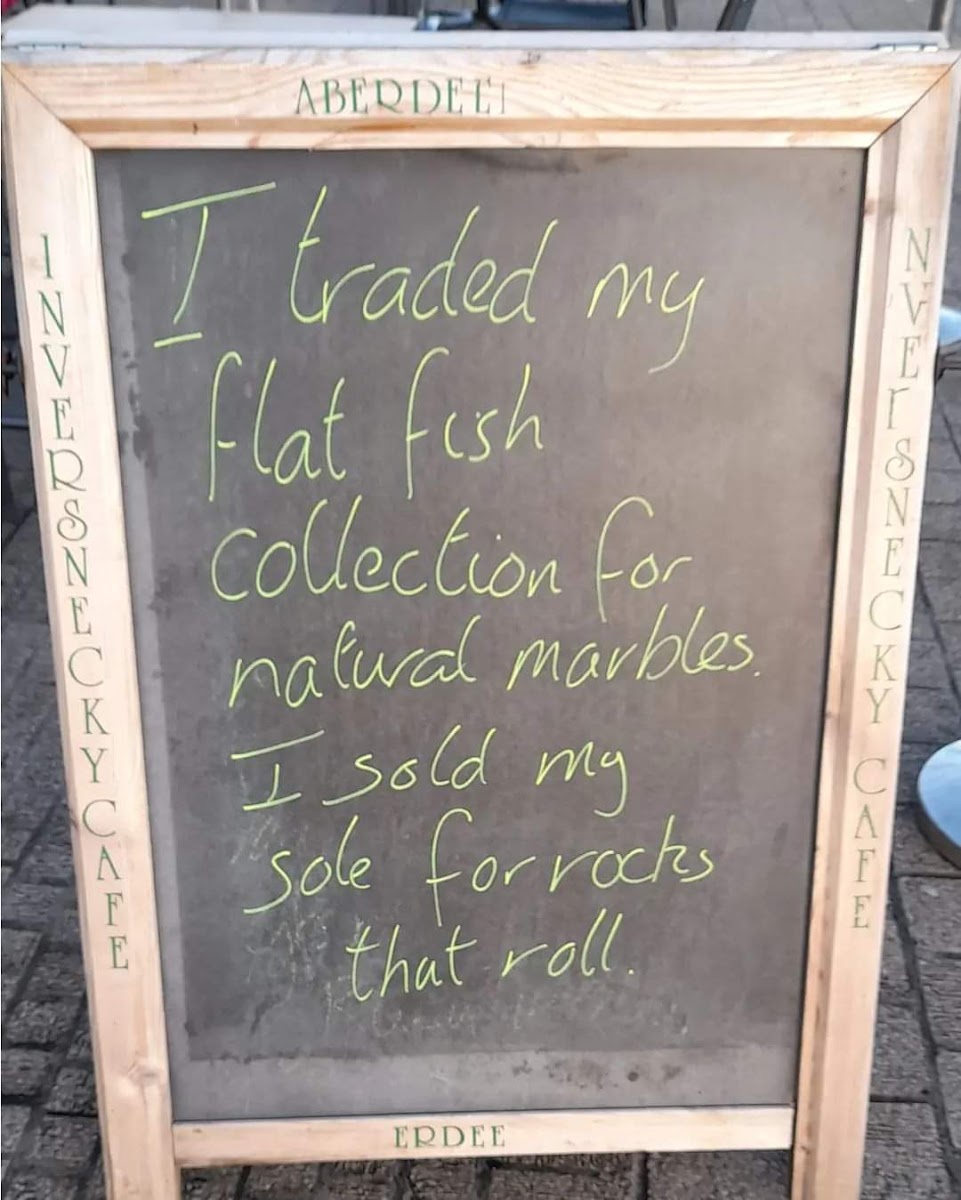 ABERDEE
INVERSNECKY CAFE
I traded my
flat fish
collection for
natural marbles.
I sold my
sole for rocks
that roll.
NVERSNECKY CAFE
ERDEE